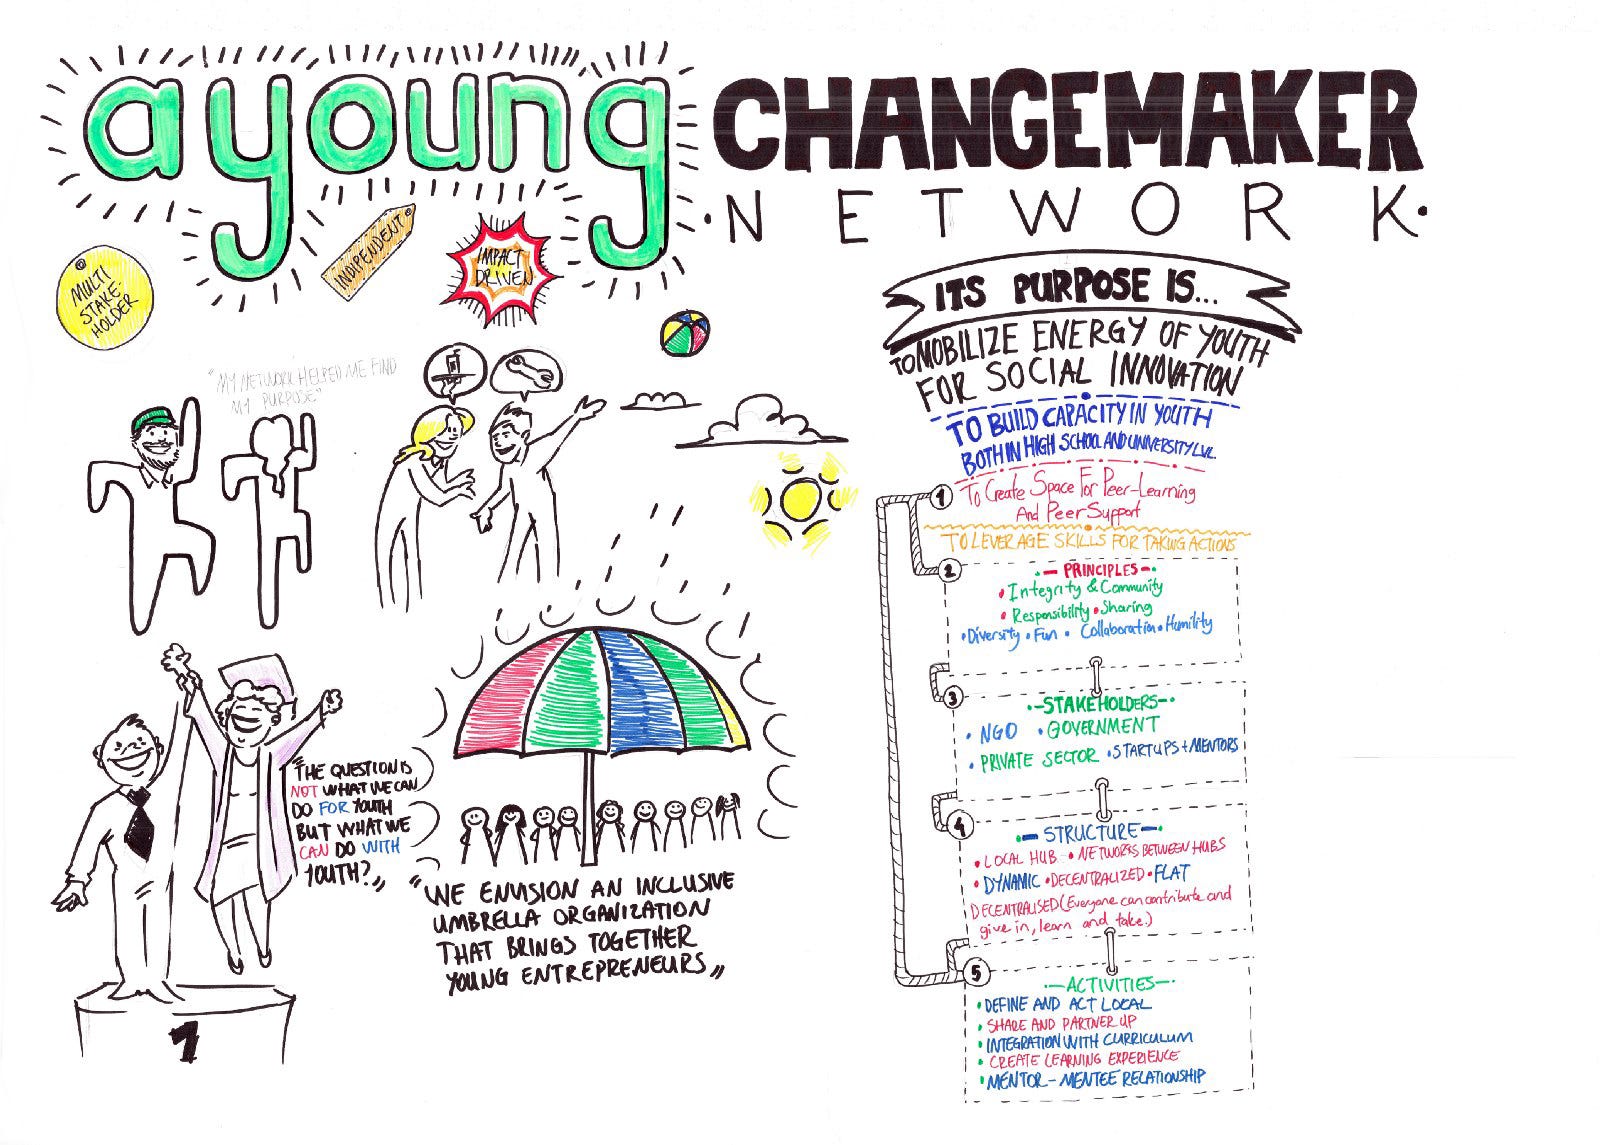 a young CHANGEMAKER
·NETWORK·
MULTI
STAKE-
HOLDER
INDIPENDENT
IMPACT
DRIVEN
"MY NETWORK HELPED ME FIND
MY PURPOSE"
"THE QUESTION IS
NOT WHAT WE CAN
DO FOR YOUTH
BUT WHAT WE
CAN DO WITH
YOUTH?"
1
"WE ENVISION AN INCLUSIVE
UMBRELLA ORGANIZATION
THAT BRINGS TOGETHER
YOUNG ENTREPRENEURS"
ITS PURPOSE IS...
TO MOBILIZE ENERGY OF YOUTH
FOR SOCIAL INNOVATION
TO BUILD CAPACITY IN YOUTH
BOTH IN HIGH SCHOOL AND UNIVERSITY LVL.
1
To Create Space For Peer-Learning
And Peer Support
TO LEVERAGE SKILLS FOR TAKING ACTIONS
2
- PRINCIPLES -
• Integrity & Community
• Responsibility • Sharing
• Diversity • Fun • Collaboration • Humility
3
- STAKEHOLDERS -
• NGO • GOVERNMENT
• PRIVATE SECTOR • STARTUPS + MENTORS
4
- STRUCTURE -
• LOCAL HUB • NETWORKS BETWEEN HUBS
• DYNAMIC • DECENTRALIZED • FLAT
DECENTRALISED (Everyone can contribute and
give in, learn and take.)
5
- ACTIVITIES -
• DEFINE AND ACT LOCAL
• SHARE AND PARTNER UP
• INTEGRATION WITH CURRICULUM
• CREATE LEARNING EXPERIENCE
• MENTOR - MENTEE RELATIONSHIP